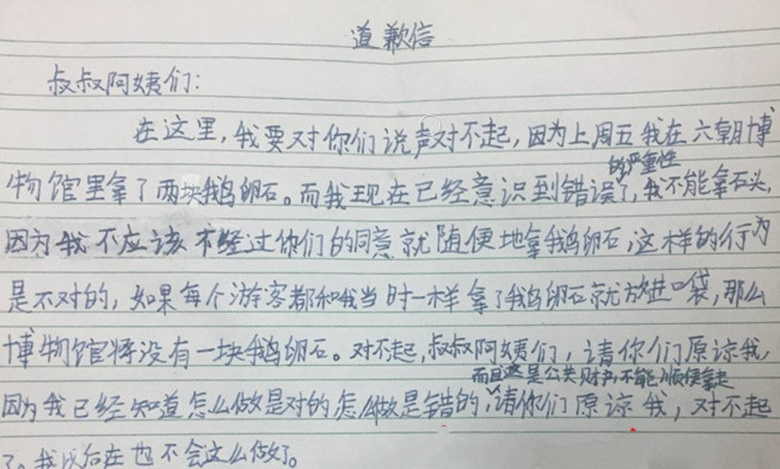 道歉信
叔叔阿姨们：
在这里，我要对你们说声对不起，因为上周五我在六朝博
物馆里拿了两块鹅卵石。而我现在已经意识到错误的严重性了，我不能拿石头，
因为我不应该不经过你们的同意就随便地拿鹅卵石，这样的行为
是不对的，如果每个游客都和我当时一样拿了鹅卵石就放进口袋，那么
博物馆将没有一块鹅卵石。对不起，叔叔阿姨们，请你们原谅我，
而且这是公共财产，不能顺便拿走
因为我已经知道怎么做是对的怎么做是错的，请你们原谅我，对不起
了。我以后在也不会这么做了。